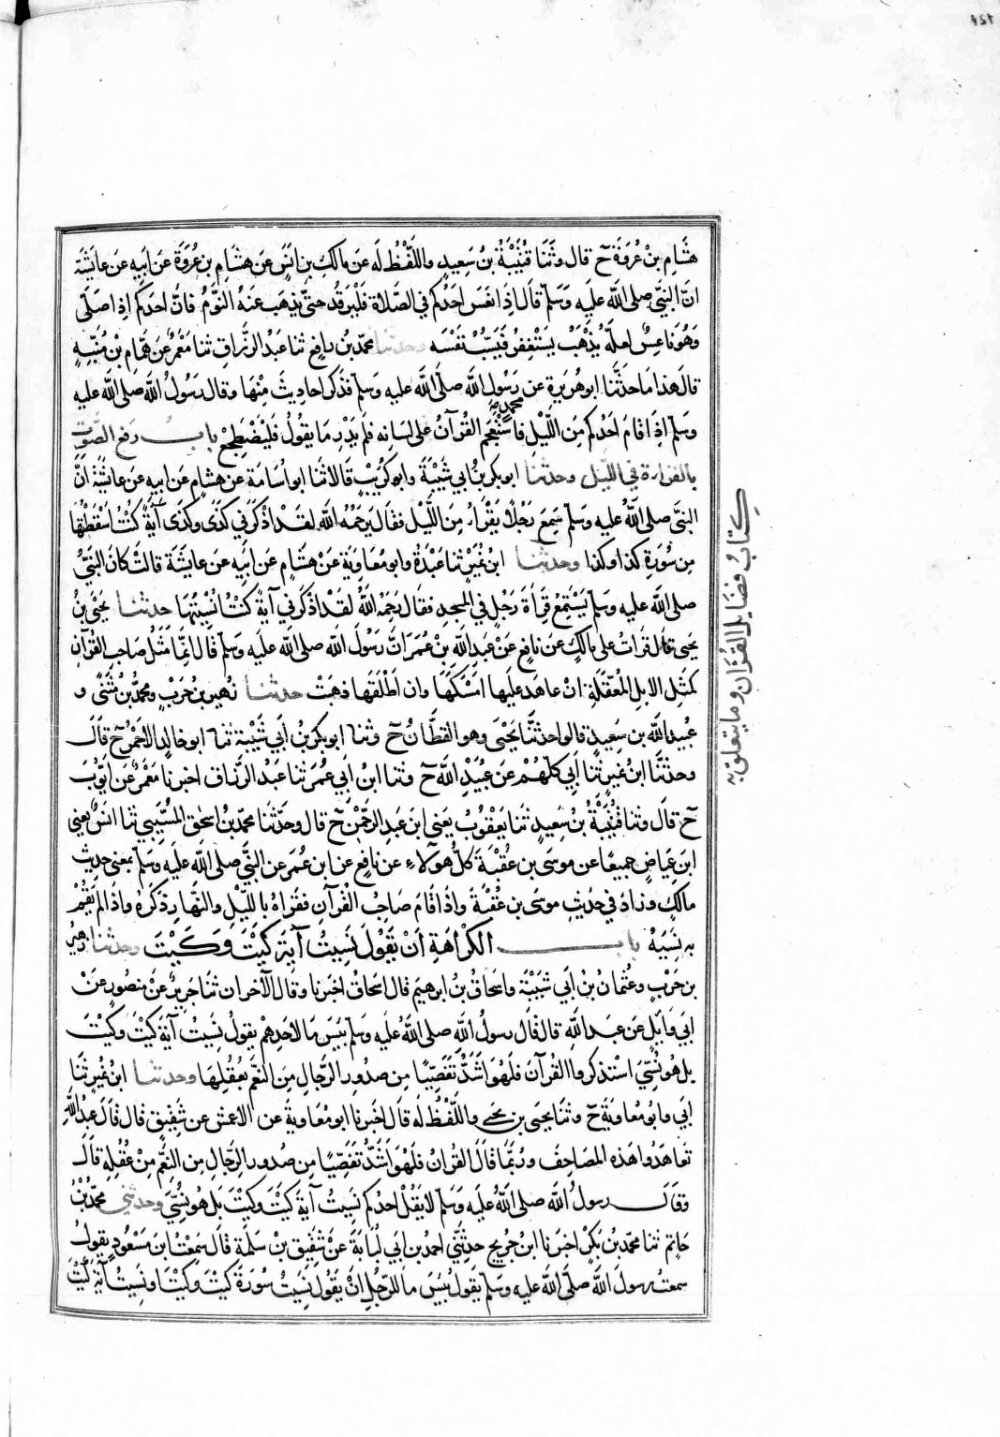 هشام بن عروة ح قال وثنا قتيبة بن سعيد واللفظ له عن مالك بن انس عن هشام بن عروة عن ابيه عن عايشة
ان النبي صلى الله عليه وسلم قال اذا نعس احدكم في الصلاة فليرقد حتى يذهب عنه النوم فان احدكم اذا صلى
وهو ناعس لعله يذهب يستغفر فيسب نفسه وحدثنا محمد بن رافع ثنا عبد الرزاق ثنا معمر عن همام بن منبه
قال هذا ما حدثنا ابو هريرة عن محمد رسول الله صلى الله عليه وسلم فذكر احاديث منها وقال رسول الله صلى الله عليه
وسلم اذا قام احدكم من الليل فاستعجم القرآن على لسانه فلم يدر ما يقول فليضطجع باب رفع الصوت
بالقراءة في الليل وحدثنا ابو بكر بن ابي شيبة وابو كريب قالا ثنا ابو اسامة عن هشام عن ابيه عن عائشة ان
النبي صلى الله عليه وسلم سمع رجلا يقرأ من الليل فقال يرحمه الله لقد اذكرني كذى وكذى آية كنت اسقطتها
من سورة كذا وكذا وحدثنا ابن نمير ثنا عبدة وابو معاوية عن هشام عن ابيه عن عايشة قالت كان النبي
صلى الله عليه وسلم يستمع قرأة رجل في المسجد فقال رحمه الله لقد اذكرني آية كنت انسيتها حدثنا يحيى بن
يحيى قال قرات على مالك عن نافع عن عبد الله بن عمر ان رسول الله صلى الله عليه وسلم قال انما مثل صاحب القرآن
كمثل الابل المعقلة ان عاهد عليها امسكها وان اطلقها ذهبت حدثنا زهير بن حرب ومحمد بن مثنى و
عبيد الله بن سعيد قالوا حدثنا يحيى وهو القطان ح وثنا ابو بكر بن ابي شيبة ثنا ابو خالد الاحمر ح قال
وحدثنا ابن نمير ثنا ابي كلهم عن عبيد الله ح وثنا ابن ابي عمر ثنا عبد الرزاق اخبرنا معمر عن ايوب
ح قال وثنا قتيبة بن سعيد ثنا يعقوب يعني ابن عبد الرحمن ح قال وحدثنا محمد بن اسحق المسيبي ثنا انس يعني
ابن عياض جميعا عن موسى بن عقبة كل هولاء عن نافع عن ابن عمر عن النبي صلى الله عليه وسلم بمعنى حديث
مالك وزاد في حديث موسى بن عقبة واذا قام صاحب القرآن فقراه بالليل والنهار ذكره واذا لم يقم
به نسيه باب الكراهة ان يقول نسيت آية كيت وكيت وحدثنا زهير
بن حرب وعثمان بن ابي شيبة واسحاق بن ابرهيم قال اسحاق اخبرنا وقال الآخران ثنا جرير عن منصور عن
ابي وايل عن عبد الله قال قال رسول الله صلى الله عليه وسلم بيس ما لاحدهم يقول نسيت آية كيت وكيت
بل هو نسي استذكروا القرآن فلهو اشد تفصيا من صدور الرجال من النعم بعقلها وحدثنا ابن نمير ثنا
ابي وابو معاوية ح وثنا يحيى بن يحيى واللفظ له قال اخبرنا ابو معاوية عن الاعمش عن شقيق قال قال عبد الله
تعاهدوا هذه المصاحف وربما قال القران فلهو اشد تفصيا من صدور الرجال من النعم من عقله قال
وقال رسول الله صلى الله عليه وسلم لا يقل احدكم نسيت آية كيت وكيت بل هو نسي وحدثني محمد بن
حاتم ثنا محمد بن بكر اخبرنا ابن جريج حدثني احمد بن ابي لبابة عن شقيق بن سلمة قال سمعت ابن مسعود يقول
سمعت رسول الله صلى الله عليه وسلم يقول بيس ما للرجل ان يقول نسيت سورة كيت وكيت او نسيت آية كيت
كتاب فضايل القران وما يتعلق به